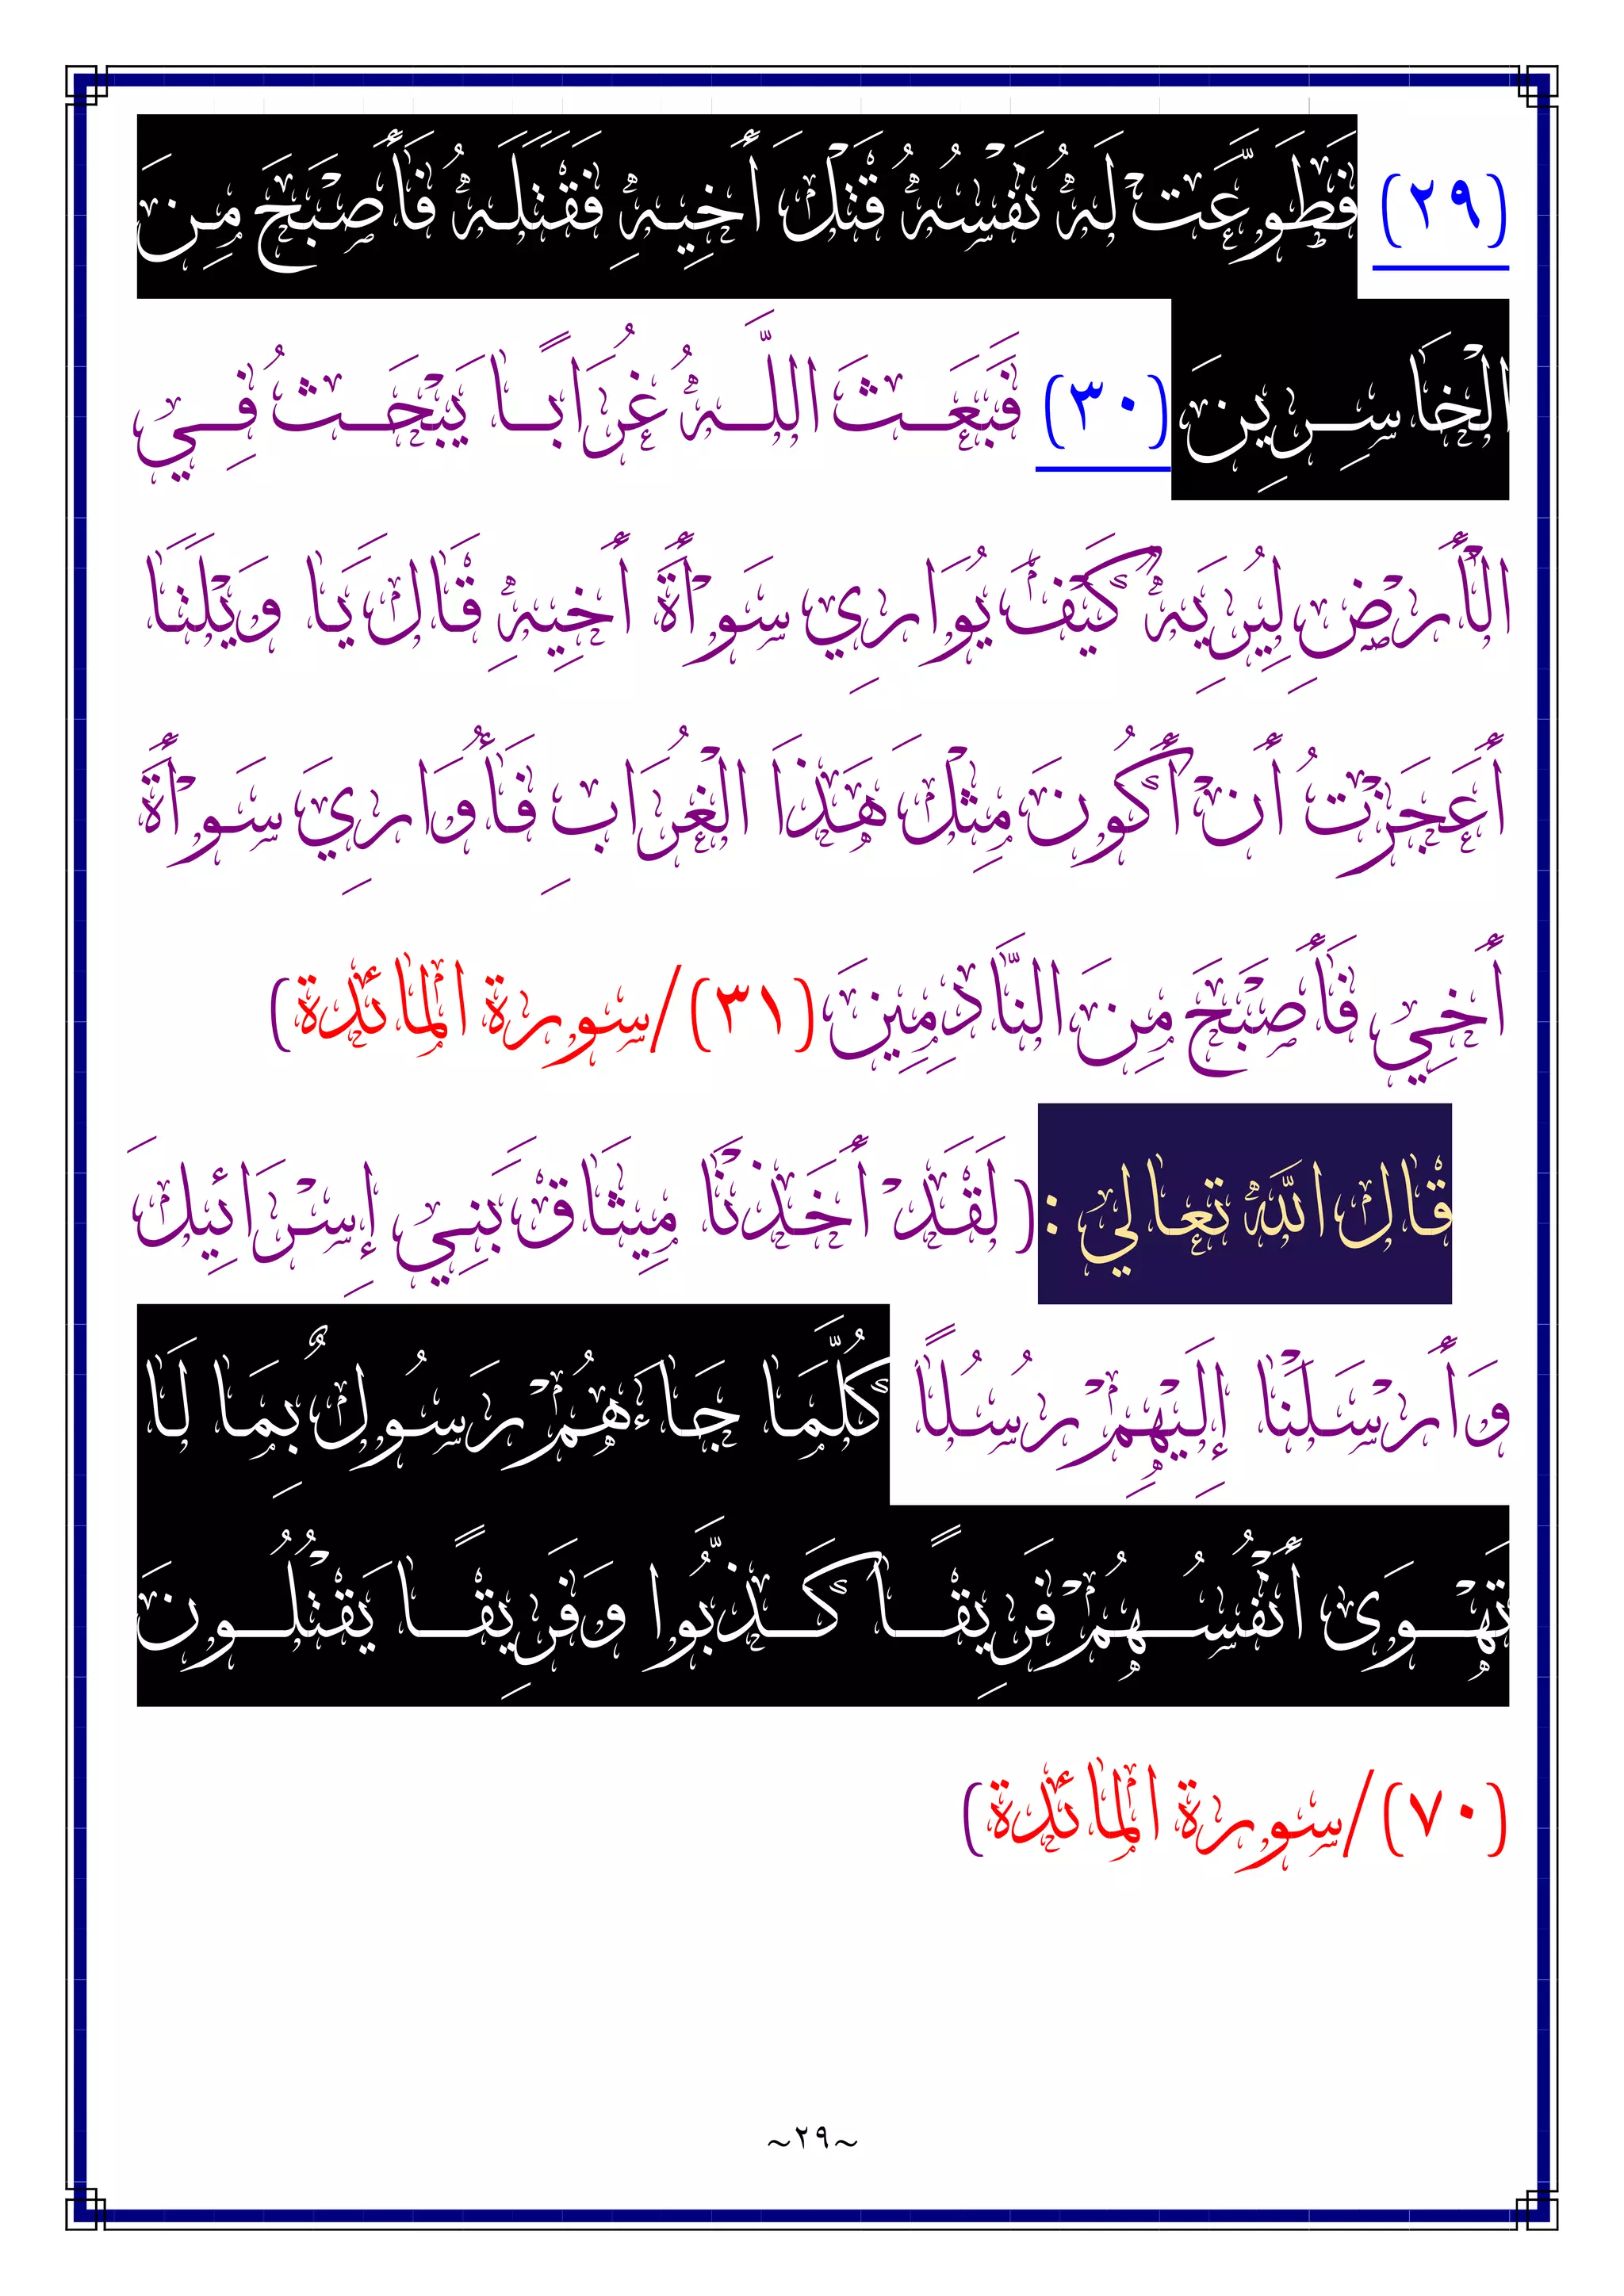 (٢٩) فَطَوَّعَتْ لَهُ نَفْسُهُ قَتْلَ أَخِيهِ فَقَتَلَهُ فَأَصْبَحَ مِنَ
الْخَاسِرِينَ (٣٠) فَبَعَثَ اللَّهُ غُرَابًا يَبْحَثُ فِي
الْأَرْضِ لِيُرِيَهُ كَيْفَ يُوَارِي سَوْأَةَ أَخِيهِ قَالَ يَا وَيْلَتَا
أَعَجَزْتُ أَنْ أَكُونَ مِثْلَ هَذَا الْغُرَابِ فَأُوَارِيَ سَوْأَةَ
أَخِي فَأَصْبَحَ مِنَ النَّادِمِينَ (٣١)/سورة المائدة)
قال الله تعالي : ( لَقَدْ أَخَذْنَا مِيثَاقَ بَنِي إِسْرَائِيلَ
وَأَرْسَلْنَا إِلَيْهِمْ رُسُلًا كُلَّمَا جَاءَهُمْ رَسُولٌ بِمَا لَا
تَهْوَى أَنْفُسُهُمْ فَرِيقًا كَذَّبُوا وَفَرِيقًا يَقْتُلُونَ
(٧٠)/سورة المائدة)
~٢٩~